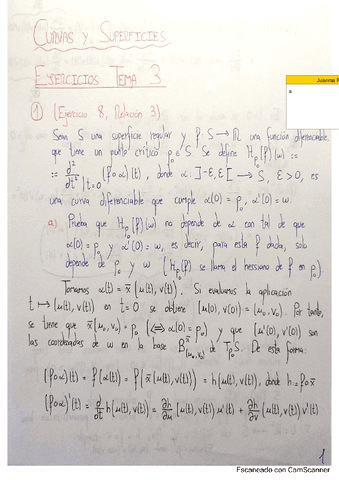 CURVAS Y SUPERFICIES
EJERCICIOS TEMA 3
1 (Ejercicio 8, Relación 3)
Sean S una superficie regular y f: S → ℝ una función diferenciable
que tiene un punto crítico p₀ ∈ S. Se define H_{p₀}(f)(w) :=
:= d²/dt²|_{t=0} (f∘α)(t), donde α: ]-ε,ε[ → S, ε>0, es
una curva diferenciable que cumple α(0) = p₀, α'(0) = w.
a) Prueba que H_{p₀}(f)(w) no depende de α con tal de que
α(0) = p₀ y α'(0) = w, es decir, para esta f dada, solo
depende de p₀ y w (H_{p₀}(f) se llama el hessiano de f en p₀).
Tomamos α(t) = x̄(u(t), v(t)). Si evaluamos la aplicación
t ↦ (u(t), v(t)) en t=0 se obtiene (u(0), v(0)) = (u₀, v₀). Por tanto,
se tiene que x̄(u₀, v₀) = p₀ (⟺ α(0) = p₀) y que (u'(0), v'(0)) son
las coordenadas de w en la base B_{(u₀,v₀)} de T_{p₀}S. De esta forma:
(f∘α)(t) = f(α(t)) = f(x̄(u(t), v(t))) = h(u(t), v(t)), donde h = f∘x̄
(f∘α)'(t) = d/dt h(u(t), v(t)) = ∂h/∂u (u(t), v(t)) u'(t) + ∂h/∂v (u(t), v(t)) v'(t)
1
Escaneado con CamScanner